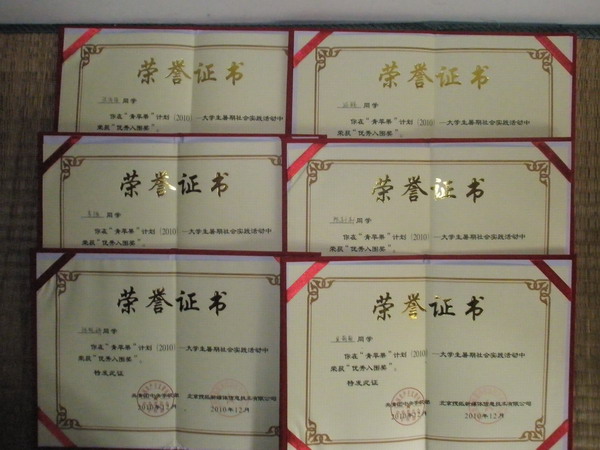 荣誉证书
荣誉证书
同学
同学
你在“青苹果”计划（2010）—大学生暑期社会实践活动中
你在“青苹果”计划（2010）—大学生暑期社会实践活动中
荣获“优秀入围奖”。
荣获“优秀入围奖”。
荣誉证书
荣誉证书
同学
同学
你在“青苹果”计划（2010）—大学生暑期社会实践活动中
你在“青苹果”计划（2010）—大学生暑期社会实践活动中
荣获“优秀入围奖”。
荣获“优秀入围奖”。
荣誉证书
荣誉证书
同学
同学
你在“青苹果”计划（2010）—大学生暑期社会实践活动中
你在“青苹果”计划（2010）—大学生暑期社会实践活动中
荣获“优秀入围奖”。
荣获“优秀入围奖”。
特发此证
特发此证
2010年12月
2010年12月
2010年12月
2010年12月